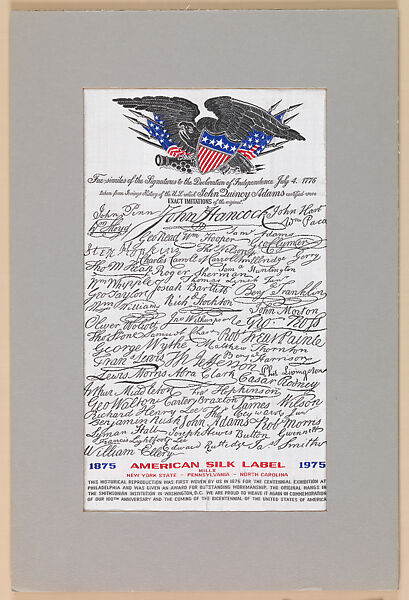 Fac-similes of the Signatures to the Declaration of Independence July 4. 1776
taken from Irvings History of the U.S. which John Quincy Adams certified were
EXACT IMITATIONS of the original.
John Penn John Hancock John Hart
Wm Paca
Geo Read Wm Hooper Sam Adams
Geo Clymer
Step Hopkins
Charles Carroll of Carrollton Elbridge Gerry
Tho M:Kean Roger Sherman Sam Huntington
Wm Whipple Thomas Lynch
Geo Taylor Josiah Bartlett Benj Franklin
Wm Williams Richd Stockton
John Morton
Oliver Wolcott Jas Witherspoon Geo Ross
Tho Stone Samuel Chase Robt Treat Paine
George Wythe Matthew Thornton
Fran Lewis Th Jefferson Benj Harrison
Lewis Morris Abra Clark Phil Livingston
Casar Rodney
Arthur Middleton Fra Hopkinson
Geo Walton Carter Braxton James Wilson
Richard Henry Lee Tho Heyward Jun
Benjamin Rush John Adams Rob Morris
Lyman Hall Joseph Hewes Button Gwinnett
Francis Lightfoot Lee
William Ellery Edward Rutledge Ja Smith
1875 AMERICAN SILK LABEL 1975
MILLS
NEW YORK STATE - PENNSYLVANIA - NORTH CAROLINA
THIS HISTORICAL REPRODUCTION WAS FIRST WOVEN BY US IN 1876 FOR THE CENTENNIAL EXHIBITION AT
PHILADELPHIA AND WAS GIVEN AN AWARD FOR OUTSTANDING WORKMANSHIP. THE ORIGINAL HANGS IN
THE SMITHSONIAN INSTITUTION IN WASHINGTON, D.C. WE ARE PROUD TO WEAVE IT AGAIN IN COMMEMORATION
OF OUR 100TH ANNIVERSARY AND THE COMING OF THE BICENTENNIAL OF THE UNITED STATES OF AMERICA